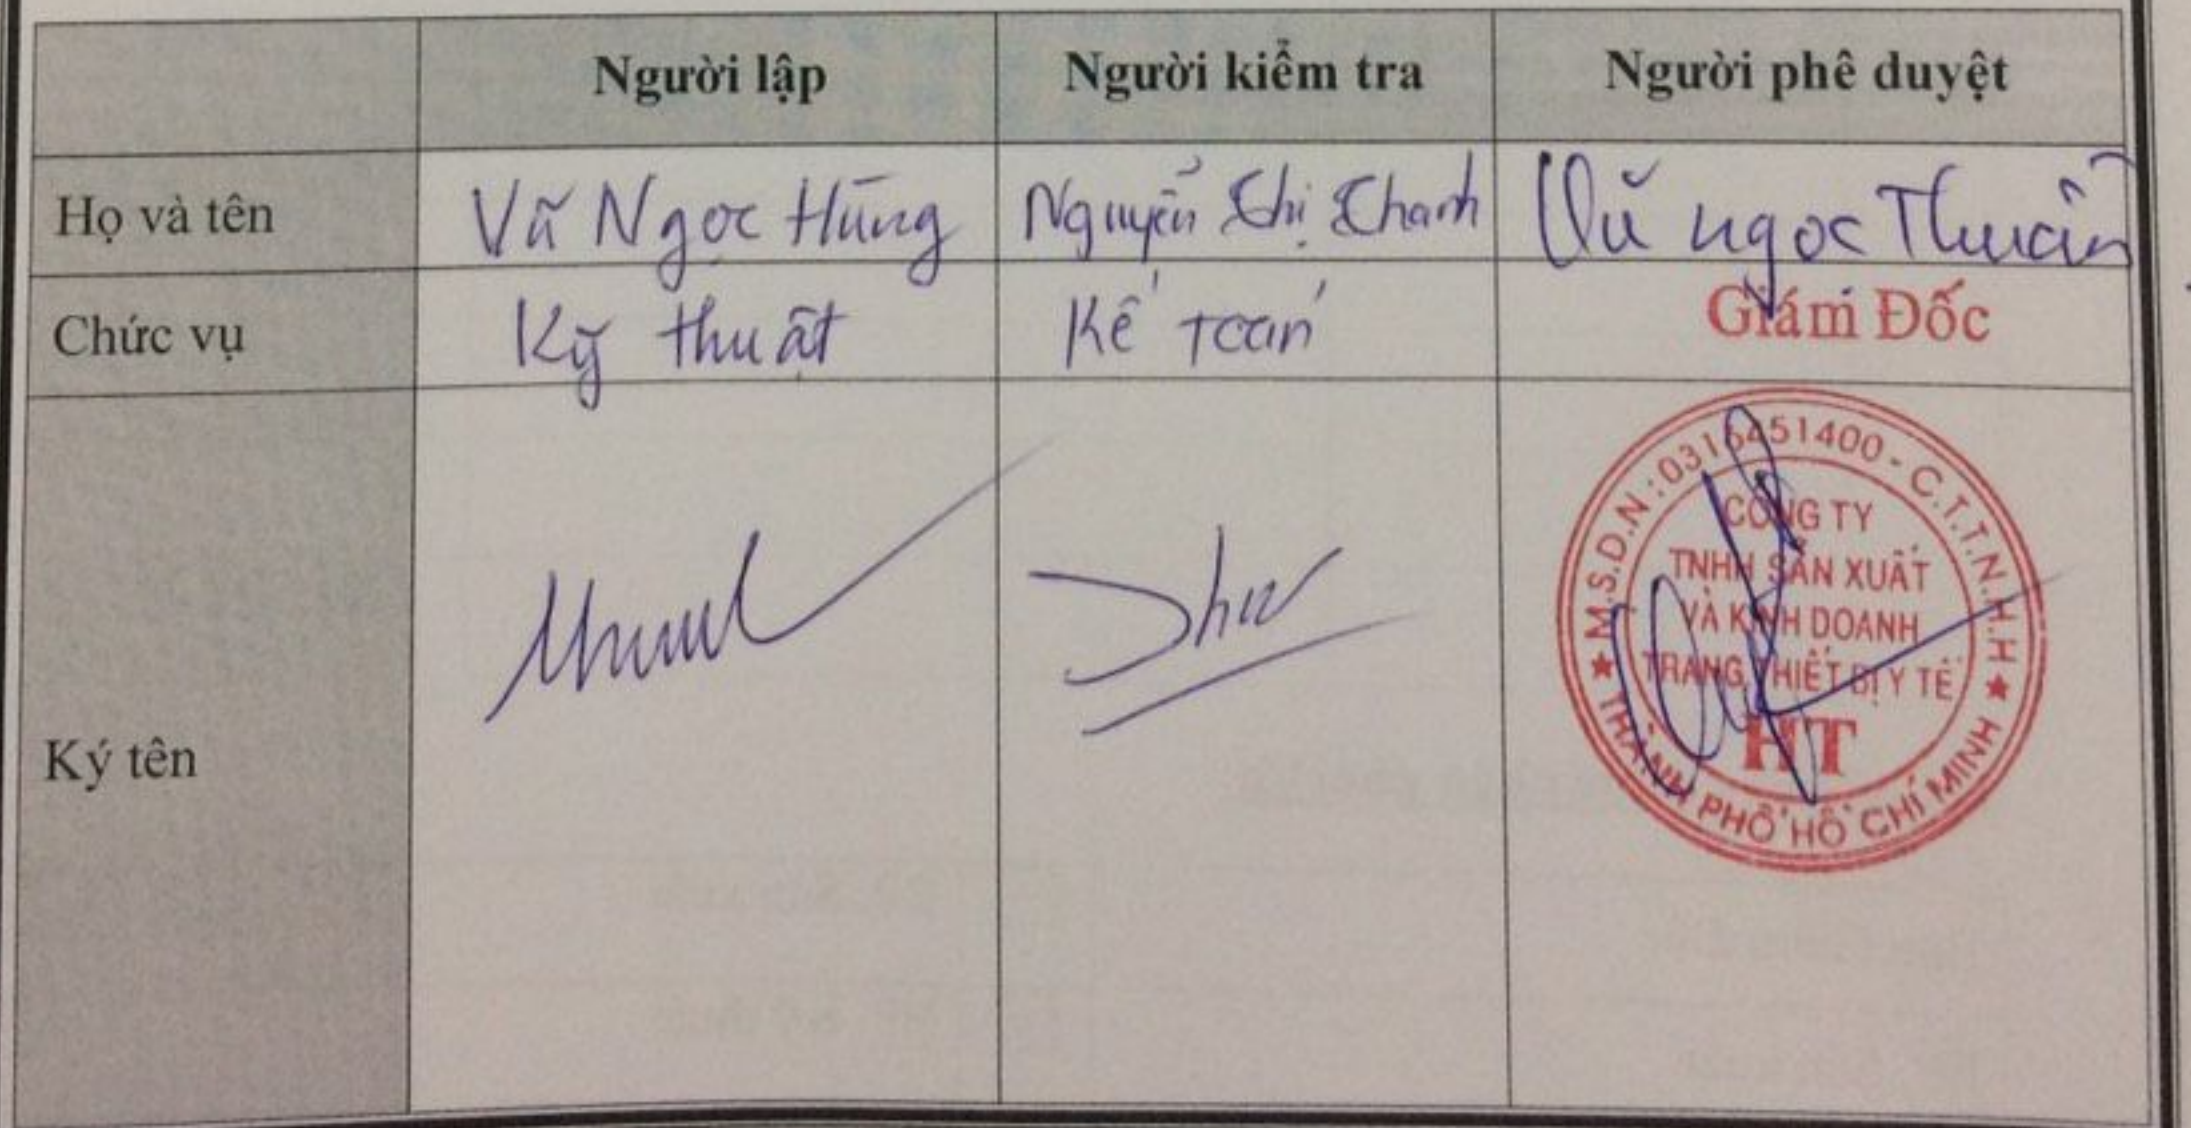 Người lập Người kiểm tra Người phê duyệt
Họ và tên Vũ Ngọc Hùng Nguyễn Thị Thanh Vũ Ngọc Thuần
Chức vụ Kỹ thuật Kế toán Giám Đốc
Ký tên
M.S.D.N: 0316451400 - C.T.T.N.H.H
CÔNG TY
TNHH SẢN XUẤT
VÀ KINH DOANH
TRANG THIẾT BỊ Y TẾ
HT
THÀNH PHỐ HỒ CHÍ MINH